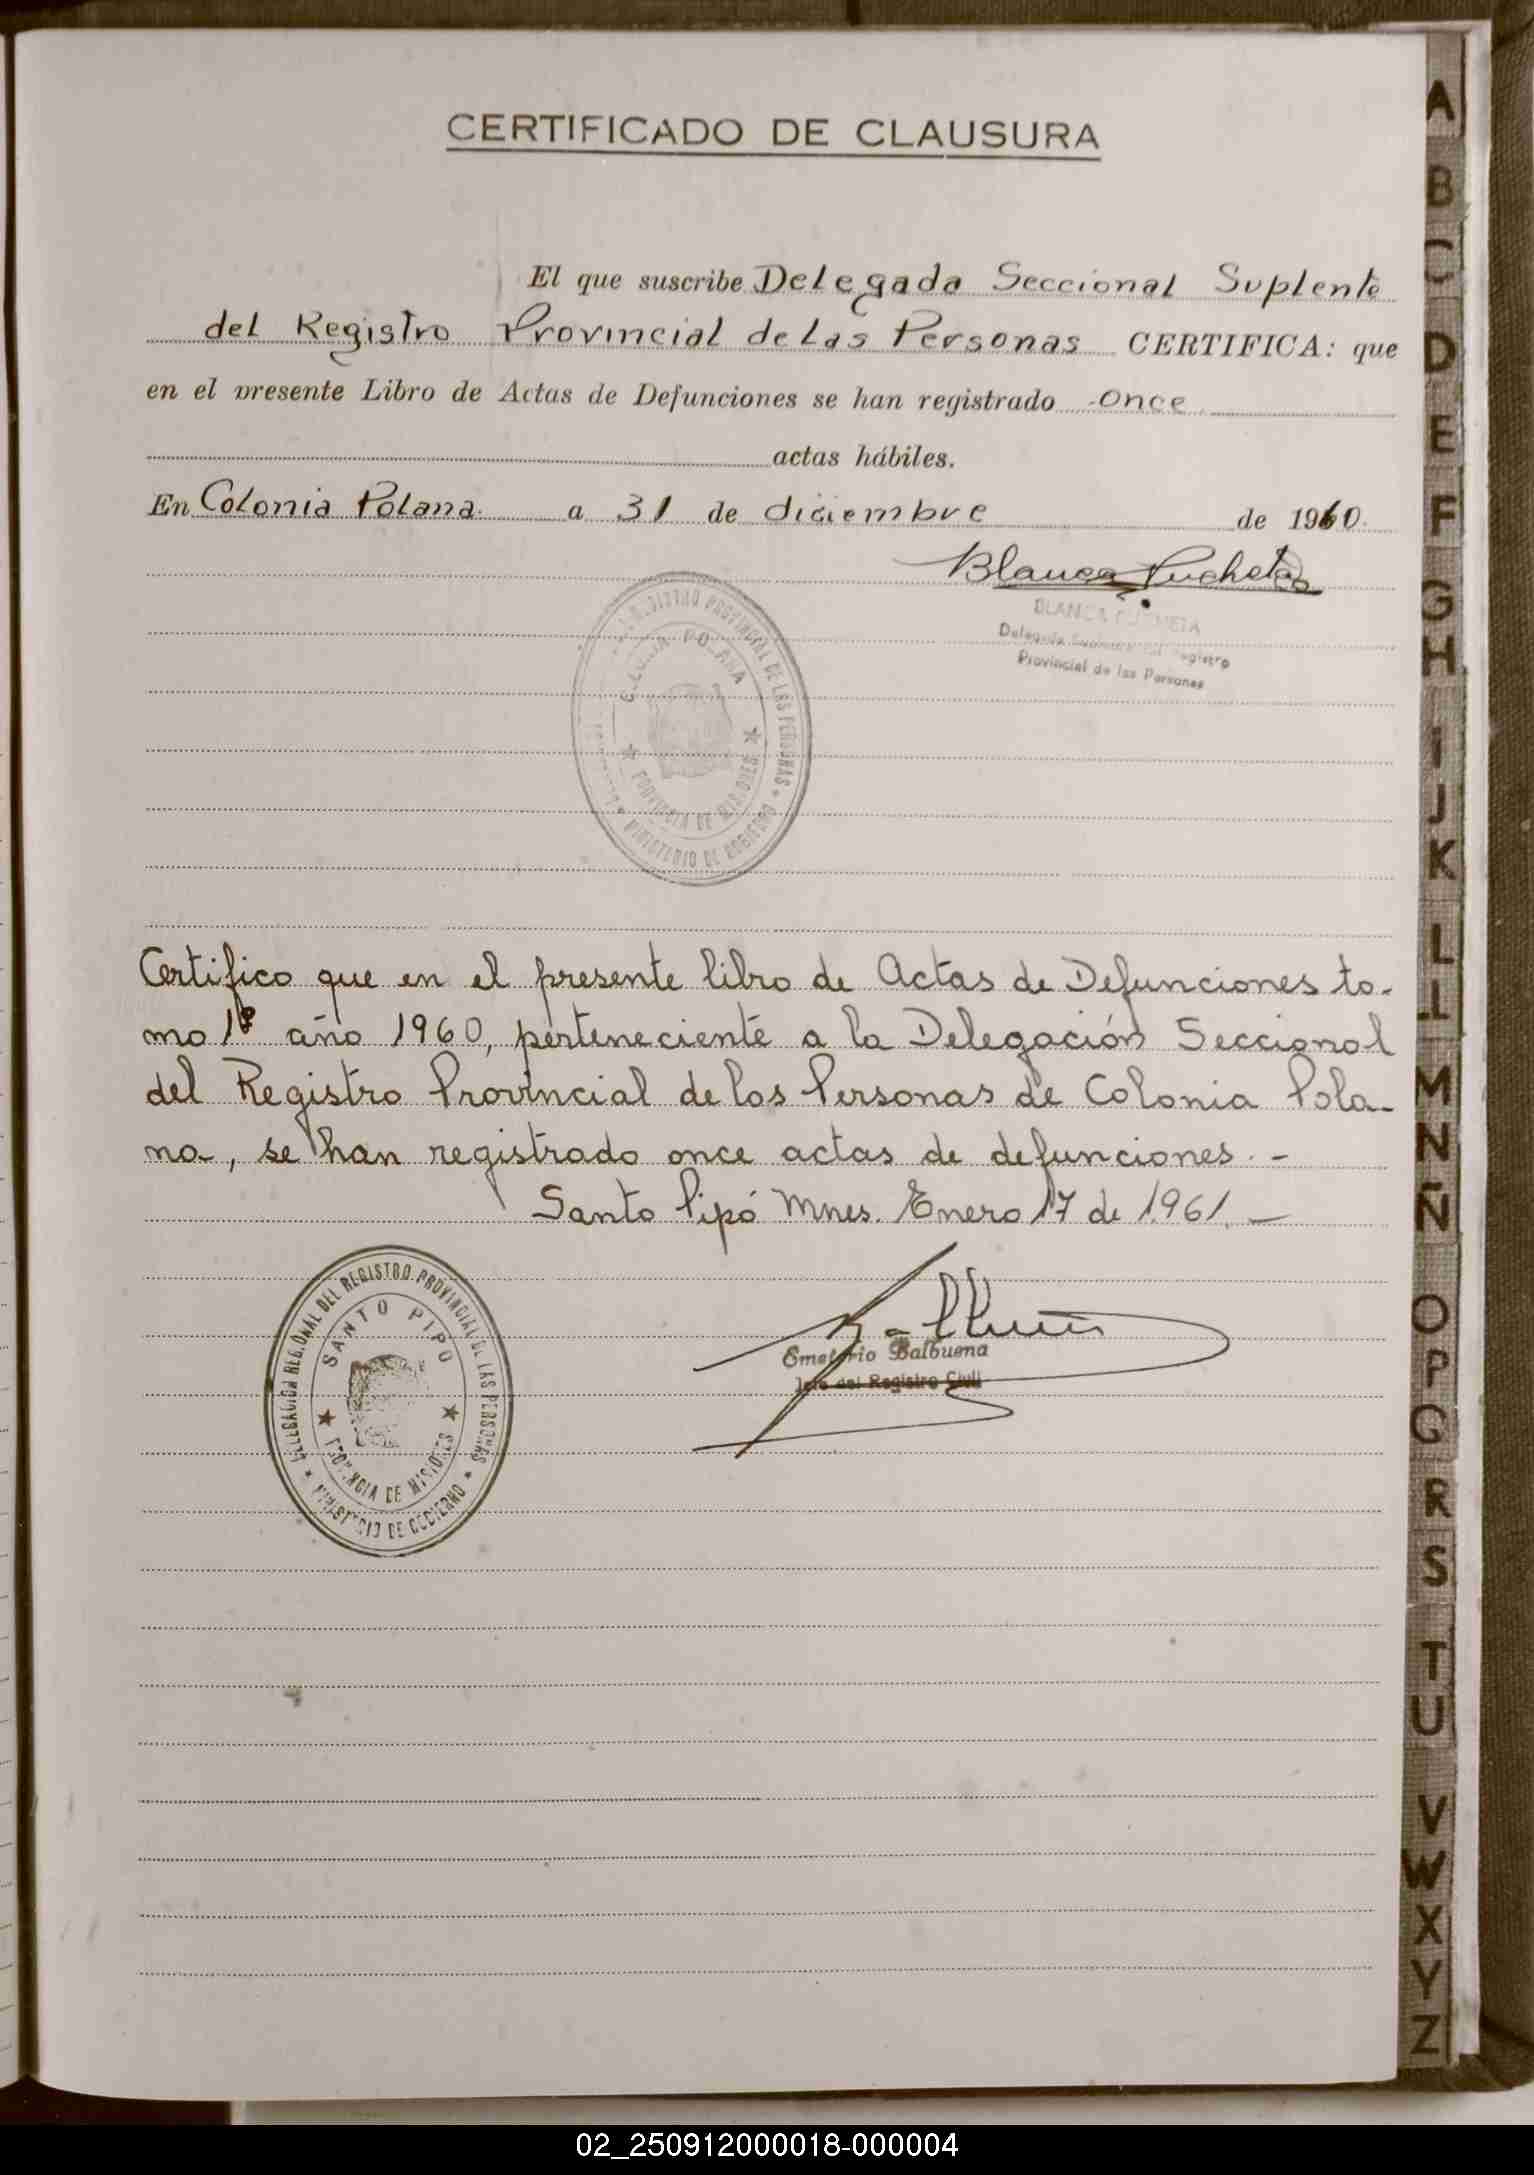 CERTIFICADO DE CLAUSURA
El que suscribe Delegada Seccional Suplente
del Registro Provincial de las Personas CERTIFICA: que
en el presente Libro de Actas de Defunciones se han registrado -once
actas hábiles.
En Colonia Polana. a 31 de diciembre de 1960.
Blanca Pucheta
BLANCA PUCHETA
Delegada Suplente del Registro
Provincial de las Personas
REGISTRO PROVINCIAL DE LAS PERSONAS
COLONIA POLANA
PROVINCIA DE MISIONES
MINISTERIO DE GOBIERNO
Certifico que en el presente libro de Actas de Defunciones to-
mo 1º año 1960, perteneciente a la Delegación Seccional
del Registro Provincial de las Personas de Colonia Pola-
na, se han registrado once actas de defunciones. -
Santo Pipó Mnes. Enero 17 de 1961. -
DELEGACION REGIONAL DEL REGISTRO PROVINCIAL DE LAS PERSONAS
SANTO PIPO
PROVINCIA DE MISIONES
MINISTERIO DE GOBIERNO
Emeterio Balbuena
Jefe del Registro Civil
A
B
C
D
E
F
G
H
I
J
K
L
LL
M
N
Ñ
O
P
Q
R
S
T
U
V
W
X
Y
Z
02_250912000018-000004